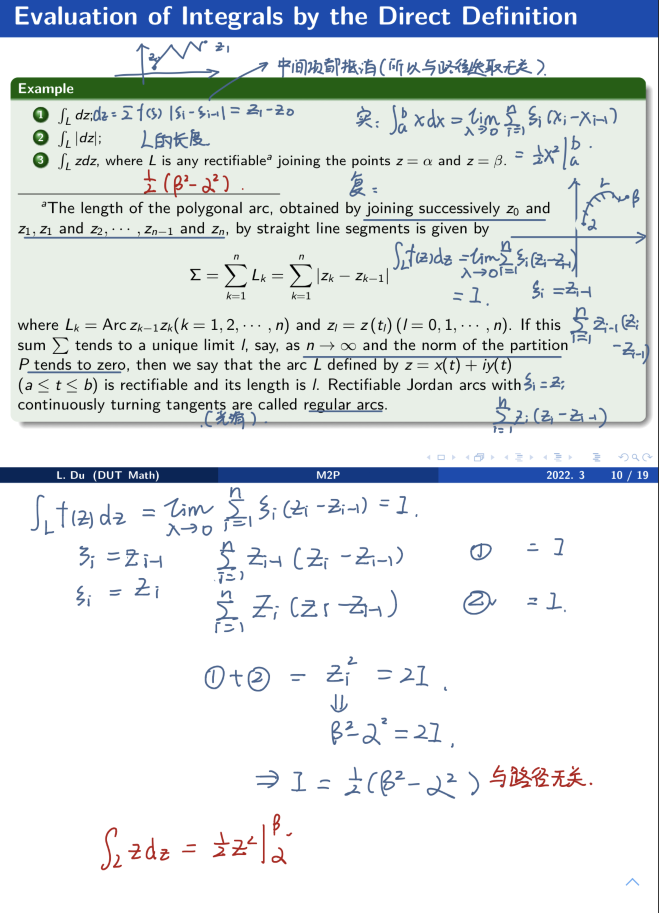 Evaluation of Integrals by the Direct Definition
z₀ z₁
中间项都抵消(所以与路径选取无关).
Example
1 ∫_L dz; dz = Σ f(ξ) |ξi − ξi−1| = z₁ − z₀
实: ∫_a^b xdx = lim_{λ→0} Σ_{i=1}^n ξi (xi − xi−1)
2 ∫_L |dz|; L的长度
3 ∫_L zdz, where L is any rectifiableᵃ joining the points z = α and z = β. = ½x²|_a^b.
½(β² − α²).
复:
L β α
ᵃThe length of the polygonal arc, obtained by joining successively z₀ and
z₁, z₁ and z₂, ⋯ , zₙ₋₁ and zₙ, by straight line segments is given by
Σ = Σ_{k=1}^n L_k = Σ_{k=1}^n |z_k − z_{k−1}|
∫_L f(z)dz = lim_{λ→0} Σ_{i=1}^n ξi (zi − zi−1)
= I. ξi = zi−1
where L_k = Arc z_{k−1}z_k(k = 1, 2, ⋯ , n) and z_l = z (t_l) (l = 0, 1, ⋯ , n). If this
Σ_{i=1}^n zi−1 (zi − zi−1)
sum ∑ tends to a unique limit l, say, as n → ∞ and the norm of the partition
P tends to zero, then we say that the arc L defined by z = x(t) + iy(t)
(a ≤ t ≤ b) is rectifiable and its length is l. Rectifiable Jordan arcs with
ξi = zi
continuously turning tangents are called regular arcs.
(光滑).
Σ_{i=1}^n zi (zi − zi−1)
L. Du (DUT Math) M2P 2022. 3 10 / 19
∫_L f(z) dz = lim_{λ→0} Σ_{i=1}^n ξi (zi − zi−1) = I.
ξi = zi−1 Σ_{i=1}^n zi−1 (zi − zi−1) ① = I
ξi = zi Σ_{i=1}^n zi (zi − zi−1) ② = I.
① + ② = zi² = 2I.
⇓
β² − α² = 2I.
⇒ I = ½(β² − α²) 与路径无关.
∫_L zdz = ½z²|_α^β.